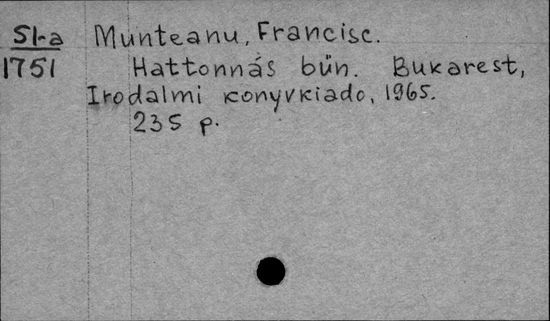 Sl-a Munteanu, Francisc.
1751 Hattonnás bűn. Bukarest,
Irodalmi konyvkiado, 1965.
235 p.